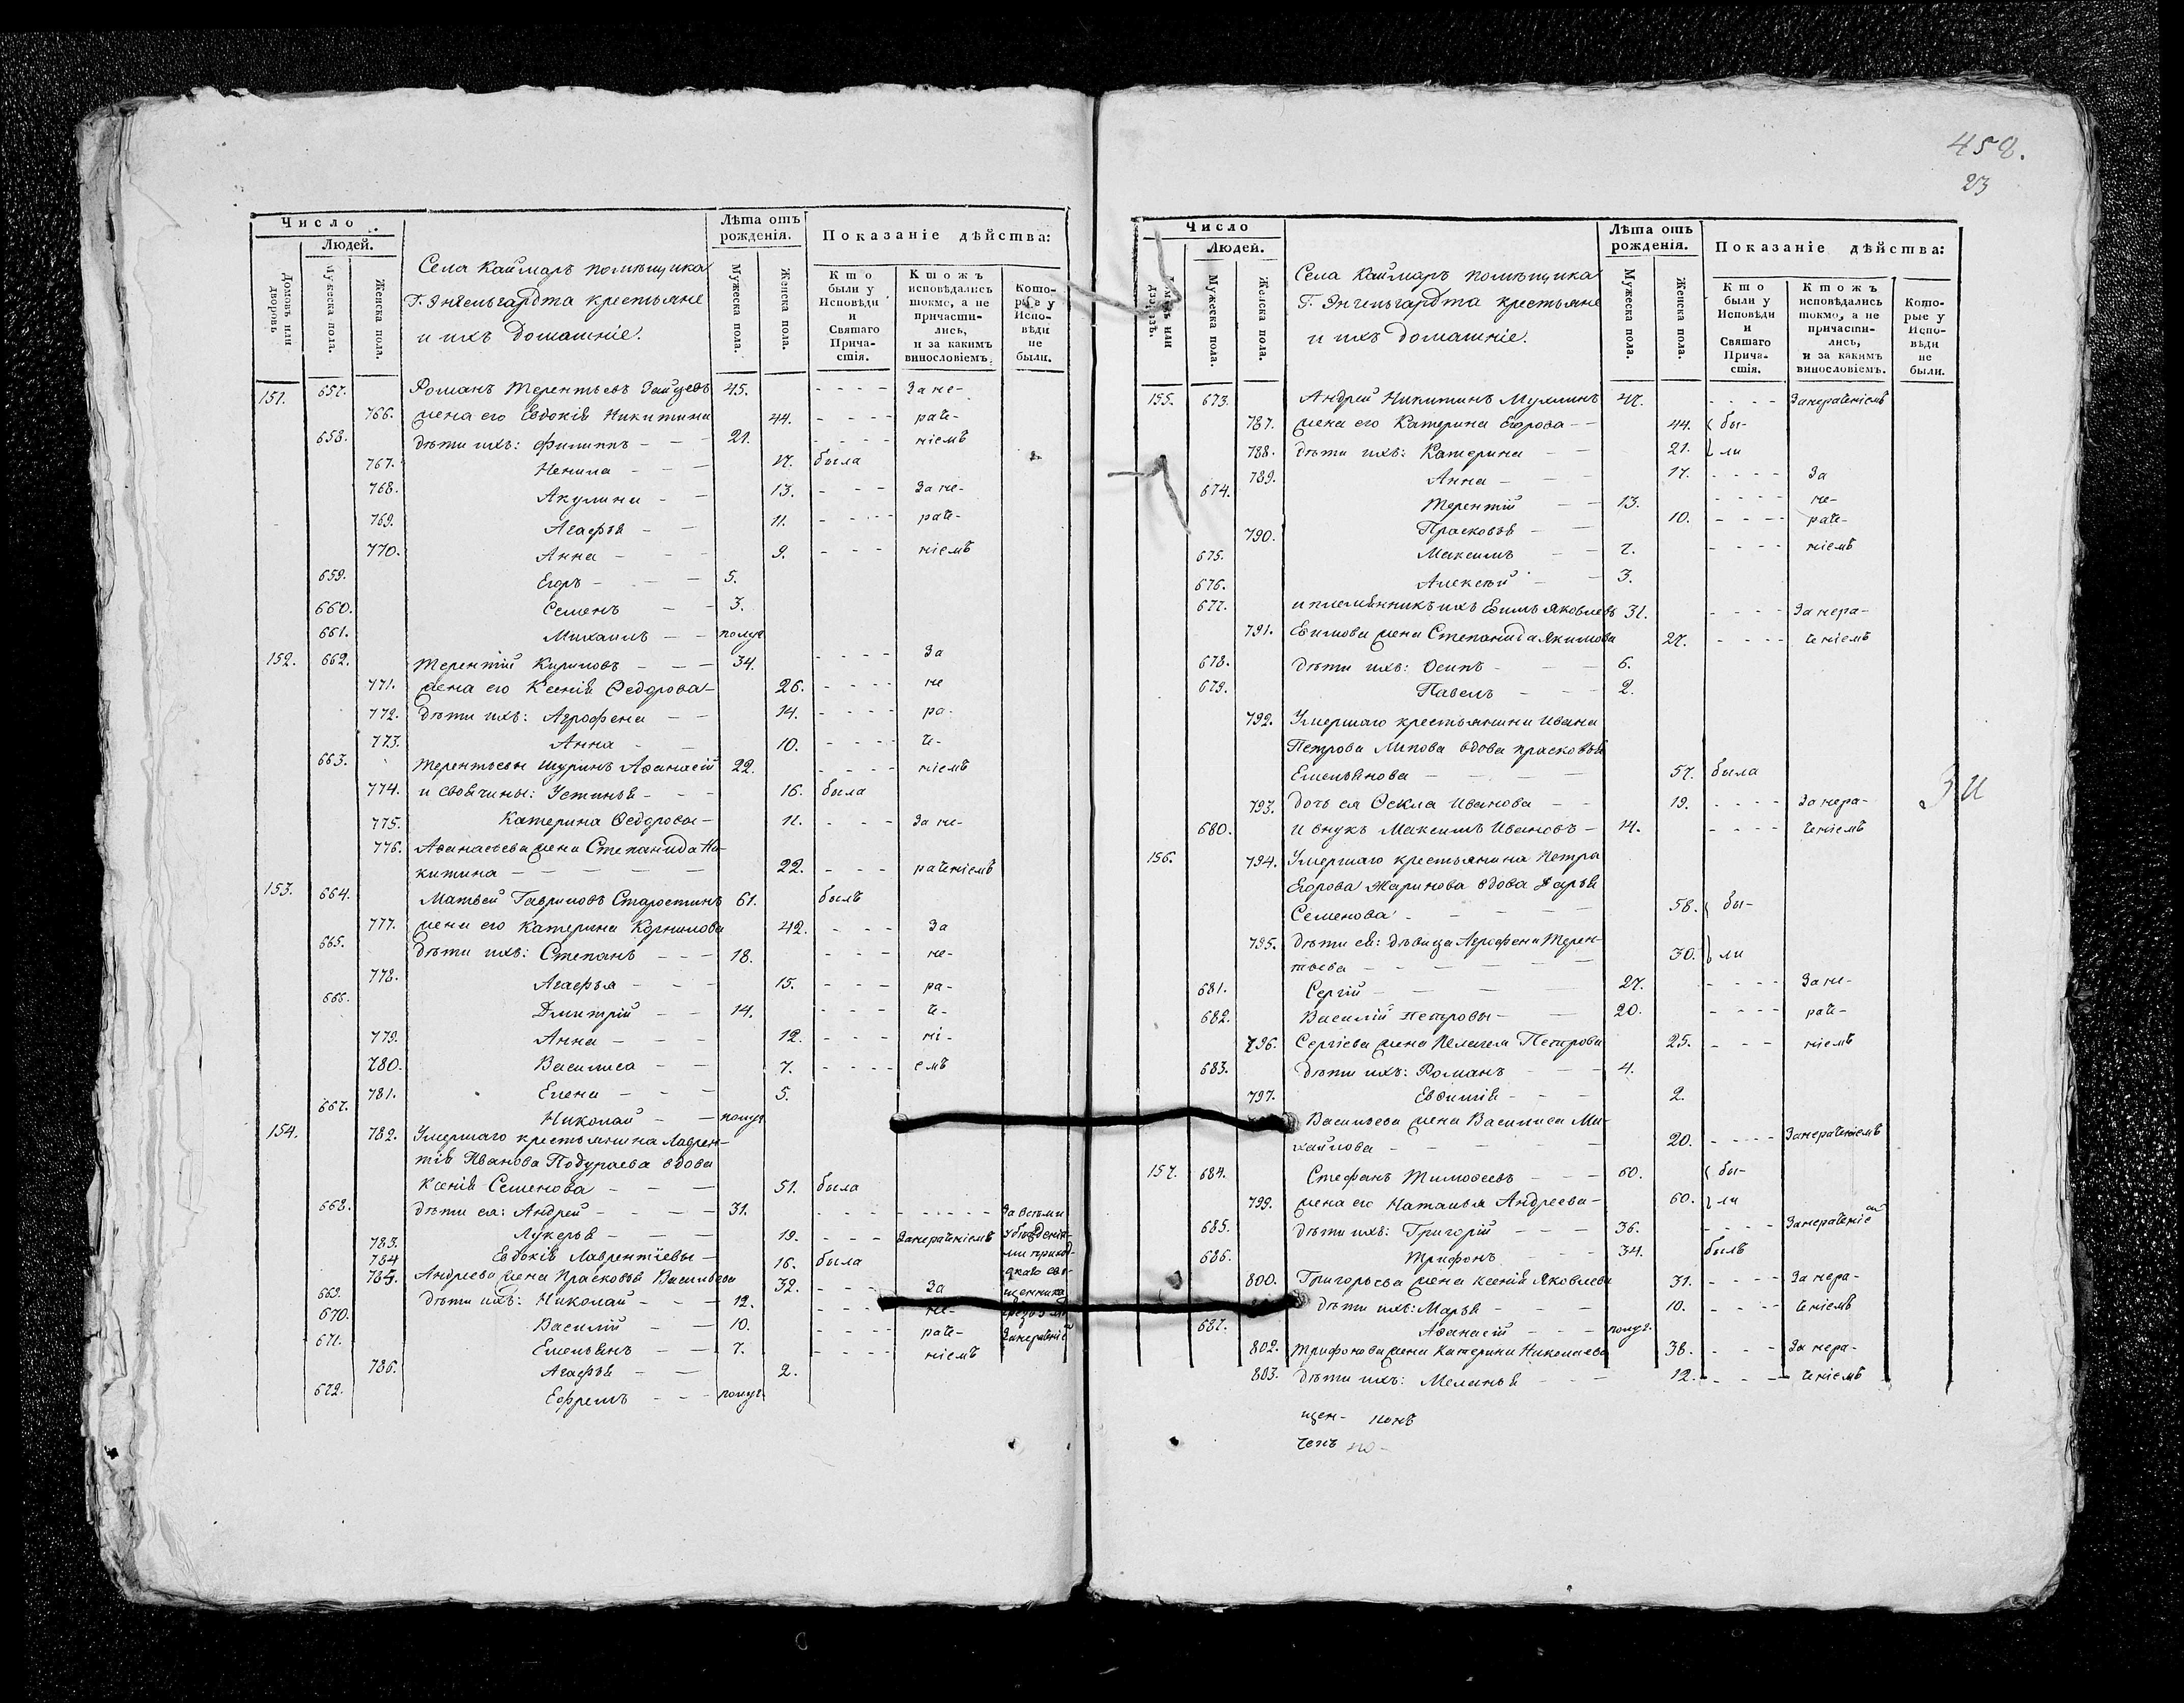 Число
Людей.
Домовъ или дворовъ
Мужеска пола.
Женска пола.
Села Каймаръ помѣщика
Г. Энгельгардта крестьяне
и ихъ домашніе.
Лѣта отъ рожденія.
Мужеска пола.
Женска пола.
Показаніе дѣйства:
Кто были у Исповѣди и Святаго Причастія.
Ктожъ исповѣдались токмо, а не причастились, и за какимъ винословіемъ.
Которые у Исповѣди не были.
151. 657. Романъ Терентьевъ Зайцевъ 45. - - - - За не-
766. жена его Евдокія Никитина 44. - - - - раче-
658. дѣти ихъ: Филиппъ - - - 21. - - - - ніемъ
767. Ненила - - - 17. была
768. Акулина - - 13. - - - За не-
769. Агафья - - 11. - - - - раче-
770. Анна - - - 9. - - - - ніемъ
659. Егоръ - - - 5.
660. Семенъ - - 3.
661. Михаилъ - - полуг.
152. 662. Терентій Кириловъ - - - 34. - - - - За
771. жена его Ксенія Ѳедорова - 26. - - - - не
772. дѣти ихъ: Агрофена - - 14. - - - - ра-
773. Анна - - 10. - - - - че-
663. Терентьевы шуринъ Аѳанасій 22. - - - - ніемъ
774. и своячины: Устинья - - - 16. была
775. Катерина Ѳедоровы - 11. - - - За не-
776. Аѳанасьева жена Степанида Ни-
китина - - - - - 22. - - - раченіемъ
153. 664. Матвей Гавриловъ Старостинъ 61. былъ
777. жена его Катерина Корнилова 42. - - - За
665. дѣти ихъ: Степанъ - - - 18. - - - не-
778. Агафья - - - 15. - - - ра-
666. Дмитрій - - 14. - - - че-
779. Анна - - - 12. - - - ні-
780. Василиса - - 7. - - - - емъ
781. Елена - - - 5.
667. Николай - - полуг.
154. 782. Умершаго крестьянина Лаврен-
тія Иванова Подураева вдова
Ксенія Семенова - - - 51. была
668. дѣти ея: Андрей - - - - 31. - - - - - - - - За всѣми
783. Лукерья - - - 19. - - - Занераченіемъ убѣжденія-
784 Евдокія Лаврентіевы - 16. была ми приход-
785. Андреева жена Прасковья Васильева 32. - - - За скаго свя-
669. дѣти ихъ: Николай - - - 12. - - - - не- щенника
670. Василій - - 10. - - - - раче-
671. Емельянъ - - 7. - - - - ніемъ Занераченіемъ
786. Агафья - - 2.
672. Ефремъ - - - полуг.
458.
23
Число
Людей.
Домовъ или дворовъ.
Мужеска пола.
Женска пола.
Села Каймаръ помѣщика
Г. Энгельгардта крестьяне
и ихъ домашніе.
Лѣта отъ рожденія.
Мужеска пола.
Женска пола.
Показаніе дѣйства:
Кто были у Исповѣди и Святаго Причастія.
Ктожъ исповѣдались токмо, а не причастились, и за какимъ винословіемъ.
Которые у Исповѣди не были.
155. 673. Андрей Никитинъ Муллинъ 47. - - - - Занераченіемъ
787. жена его Катерина Егорова - - 44. бы-
788. дѣти ихъ: Катерина - - 21. ли
789. Анна - - - 17. - - - - За
674. Терентій - - 13. - - - - не-
790. Прасковья - - 10. - - - - раче-
675. Максимъ - - 7. - - - - ніемъ
676. Алексѣй - - 3.
677. и племянникъ ихъ Евимъ Яковлевъ 31. - - - - За нера-
791. Евимова жена Степанида Якимова 27. - - - - ченіемъ
678. дѣти ихъ: Осипъ - - - 6.
679. Павелъ - - - 2.
792. Умершаго крестьянина Ивана
Петрова Липова вдова Прасковья
Емельянова - - - - 57. была
793. дочь ея Ѳекла Иванова - - 19. - - - - За нера-
680. и внукъ Максимъ Ивановъ - 14. - - - - ченіемъ
156. 794. Умершаго крестьянина Петра
Егорова Жаринова вдова Дарья
Семенова - - - - - 58. бы-
795. дѣти ея: дѣвица Агрофена Терен-
тьева - - - - - - 30. ли
681. Сергій - - - - 27. - - - - За не-
682. Василій Петровы - - 20. - - - - раче-
796. Сергіева жена Пелагея Петрова 25. - - - ніемъ
683. дѣти ихъ: Романъ - - - 4.
797. Евѳимія - - - 2.
Васильева жена Василиса Ми-
хайлова - - - - 20. - - - - Занераченіемъ
157. 684. Стефанъ Тимоѳеевъ - - - 60. бы-
799. жена его Наталья Андреева - 60. ли
685. дѣти ихъ: Григорій - - - 36. - - - - Занераченіемъ
686. Трифонъ - - - 34. былъ
800. Григорьева жена Ксенія Яковлева 31. - - - - За нера-
дѣти ихъ: Марья - - - 10. - - - - ченіемъ
687. Аѳанасій - - - полуг.
802. Трифонова жена Катерина Николаева 38. - - - За нера-
803. дѣти ихъ: Меланья - - - 12. - - - ченіемъ